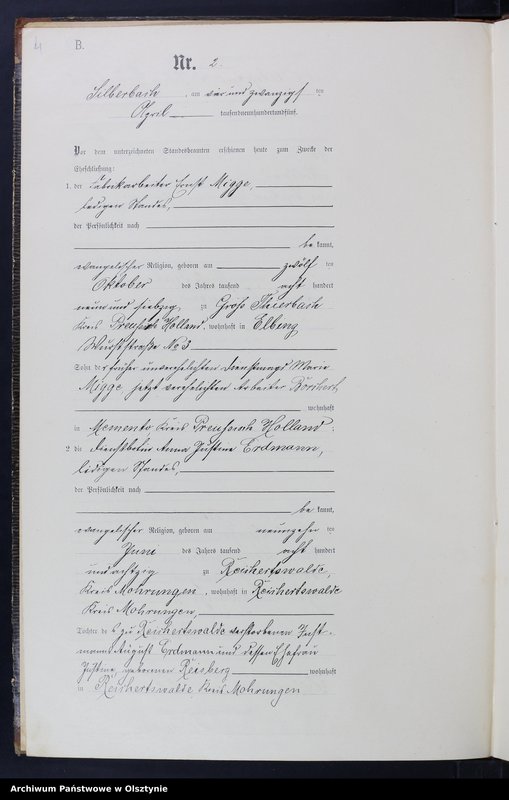 4
B.
Nr. 2
Silberbach, am vier und zwanzigsten
April tausendneunhundertundfünf.
Vor dem unterzeichneten Standesbeamten erschienen heute zum Zwecke der
Eheschließung:
1. der Fabrikarbeiter Ernst Migge,
ledigen Standes,
der Persönlichkeit nach
be kannt,
evangelischer Religion, geboren am zwölf ten
Oktober des Jahres tausend acht hundert
neun und siebzig, zu Groß Thierbach
Kreis Preussisch Holland, wohnhaft in Elbing
Straße No 3
Sohn der früher unverehelichten Dienstmagd Marie
Migge, jetzt verehelichten Arbeiter Borchert
wohnhaft
in Kreis Preussisch Holland;
2. die Dienstbotin Anna Justine Erdmann,
ledigen Standes,
der Persönlichkeit nach
be kannt,
evangelischer Religion, geboren am neunzehn ten
Juni des Jahres tausend acht hundert
und achtzig zu Reichertswalde,
Kreis Mohrungen, wohnhaft in Reichertswalde
Kreis Mohrungen,
Tochter des zu Reichertswalde verstorbenen Inst-
manns August Erdmann und dessen Ehefrau
Justine, geborenen wohnhaft
in Reichertswalde, Kreis Mohrungen
Archiwum Państwowe w Olsztynie